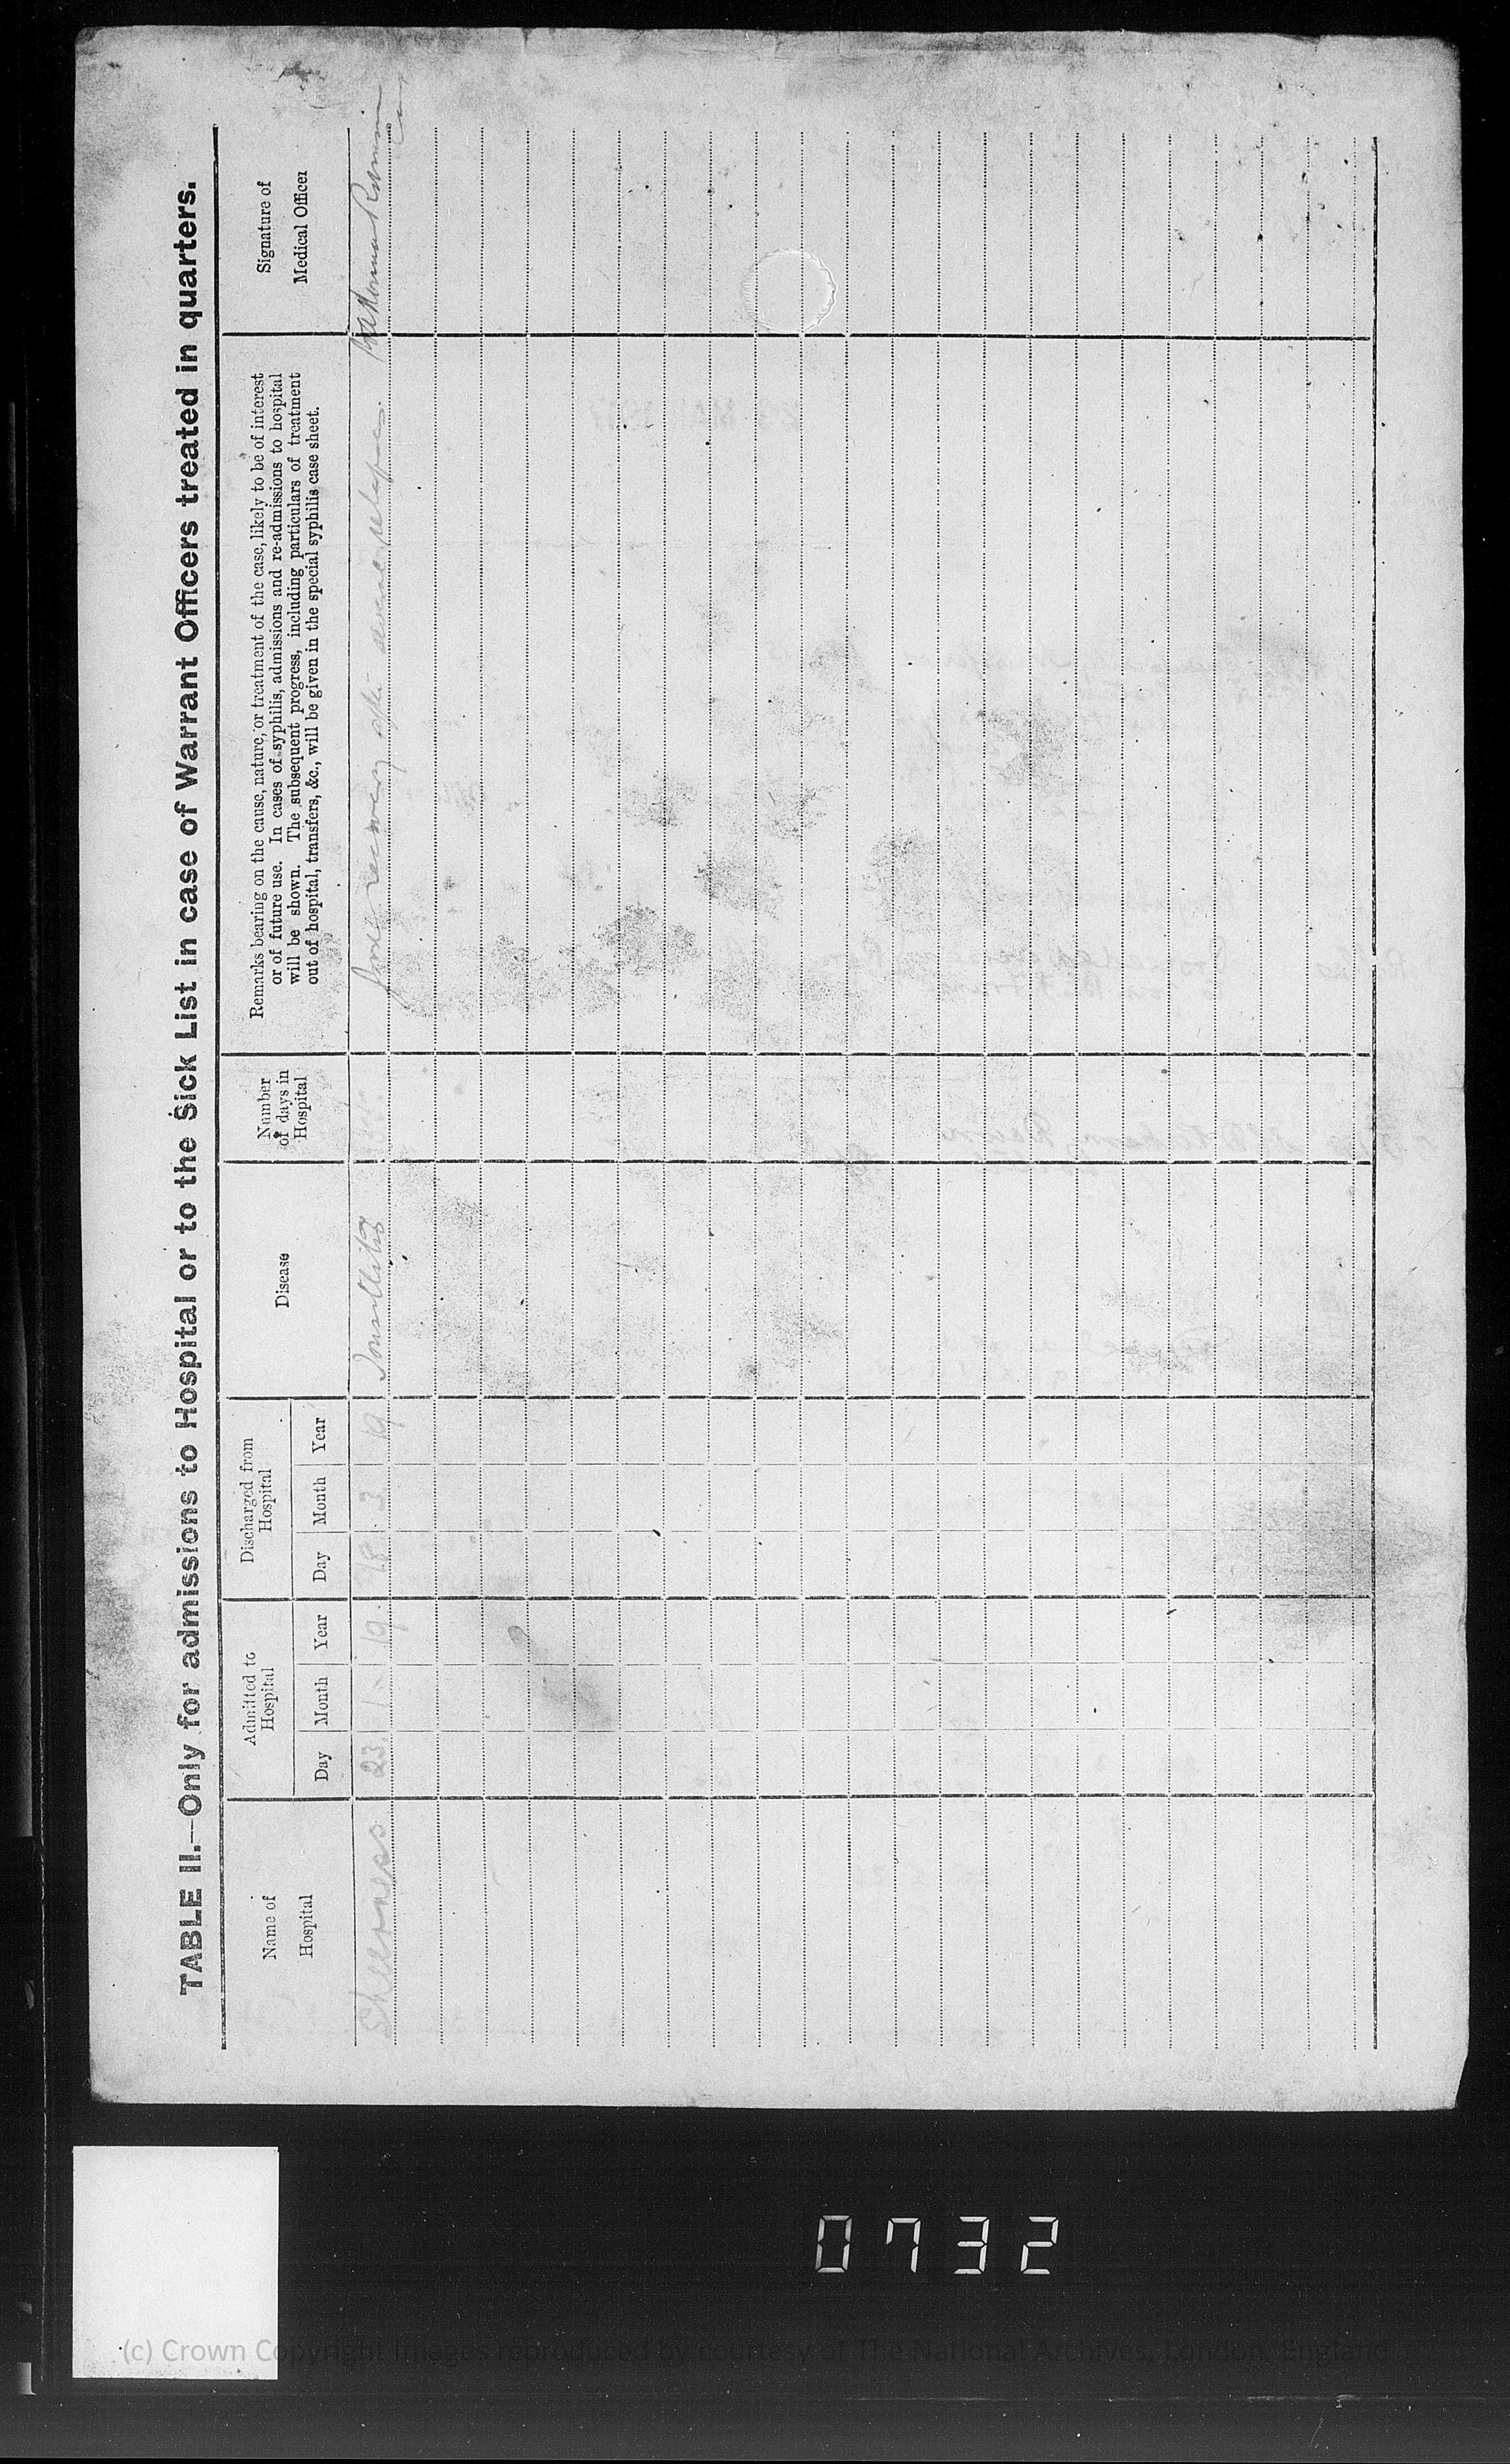 TABLE II.—Only for admissions to Hospital or to the Sick List in case of Warrant Officers treated in quarters.
Name of
Hospital
Admitted to
Hospital
Day Month Year
Discharged from
Hospital
Day Month Year
Disease
Number
of days in
Hospital
Remarks bearing on the cause, nature, or treatment of the case, likely to be of interest
or of future use. In cases of syphilis, admissions and re-admissions to hospital
will be shown. The subsequent progress, including particulars of treatment
out of hospital, transfers, &c., will be given in the special syphilis case sheet.
Signature of
Medical Officer
Sheerness 23 1 19. 18. 3. 19 Tonsillitis Good recovery after several relapses.
0732
(c) Crown Copyright Images reproduced by courtesy of The National Archives, London, England